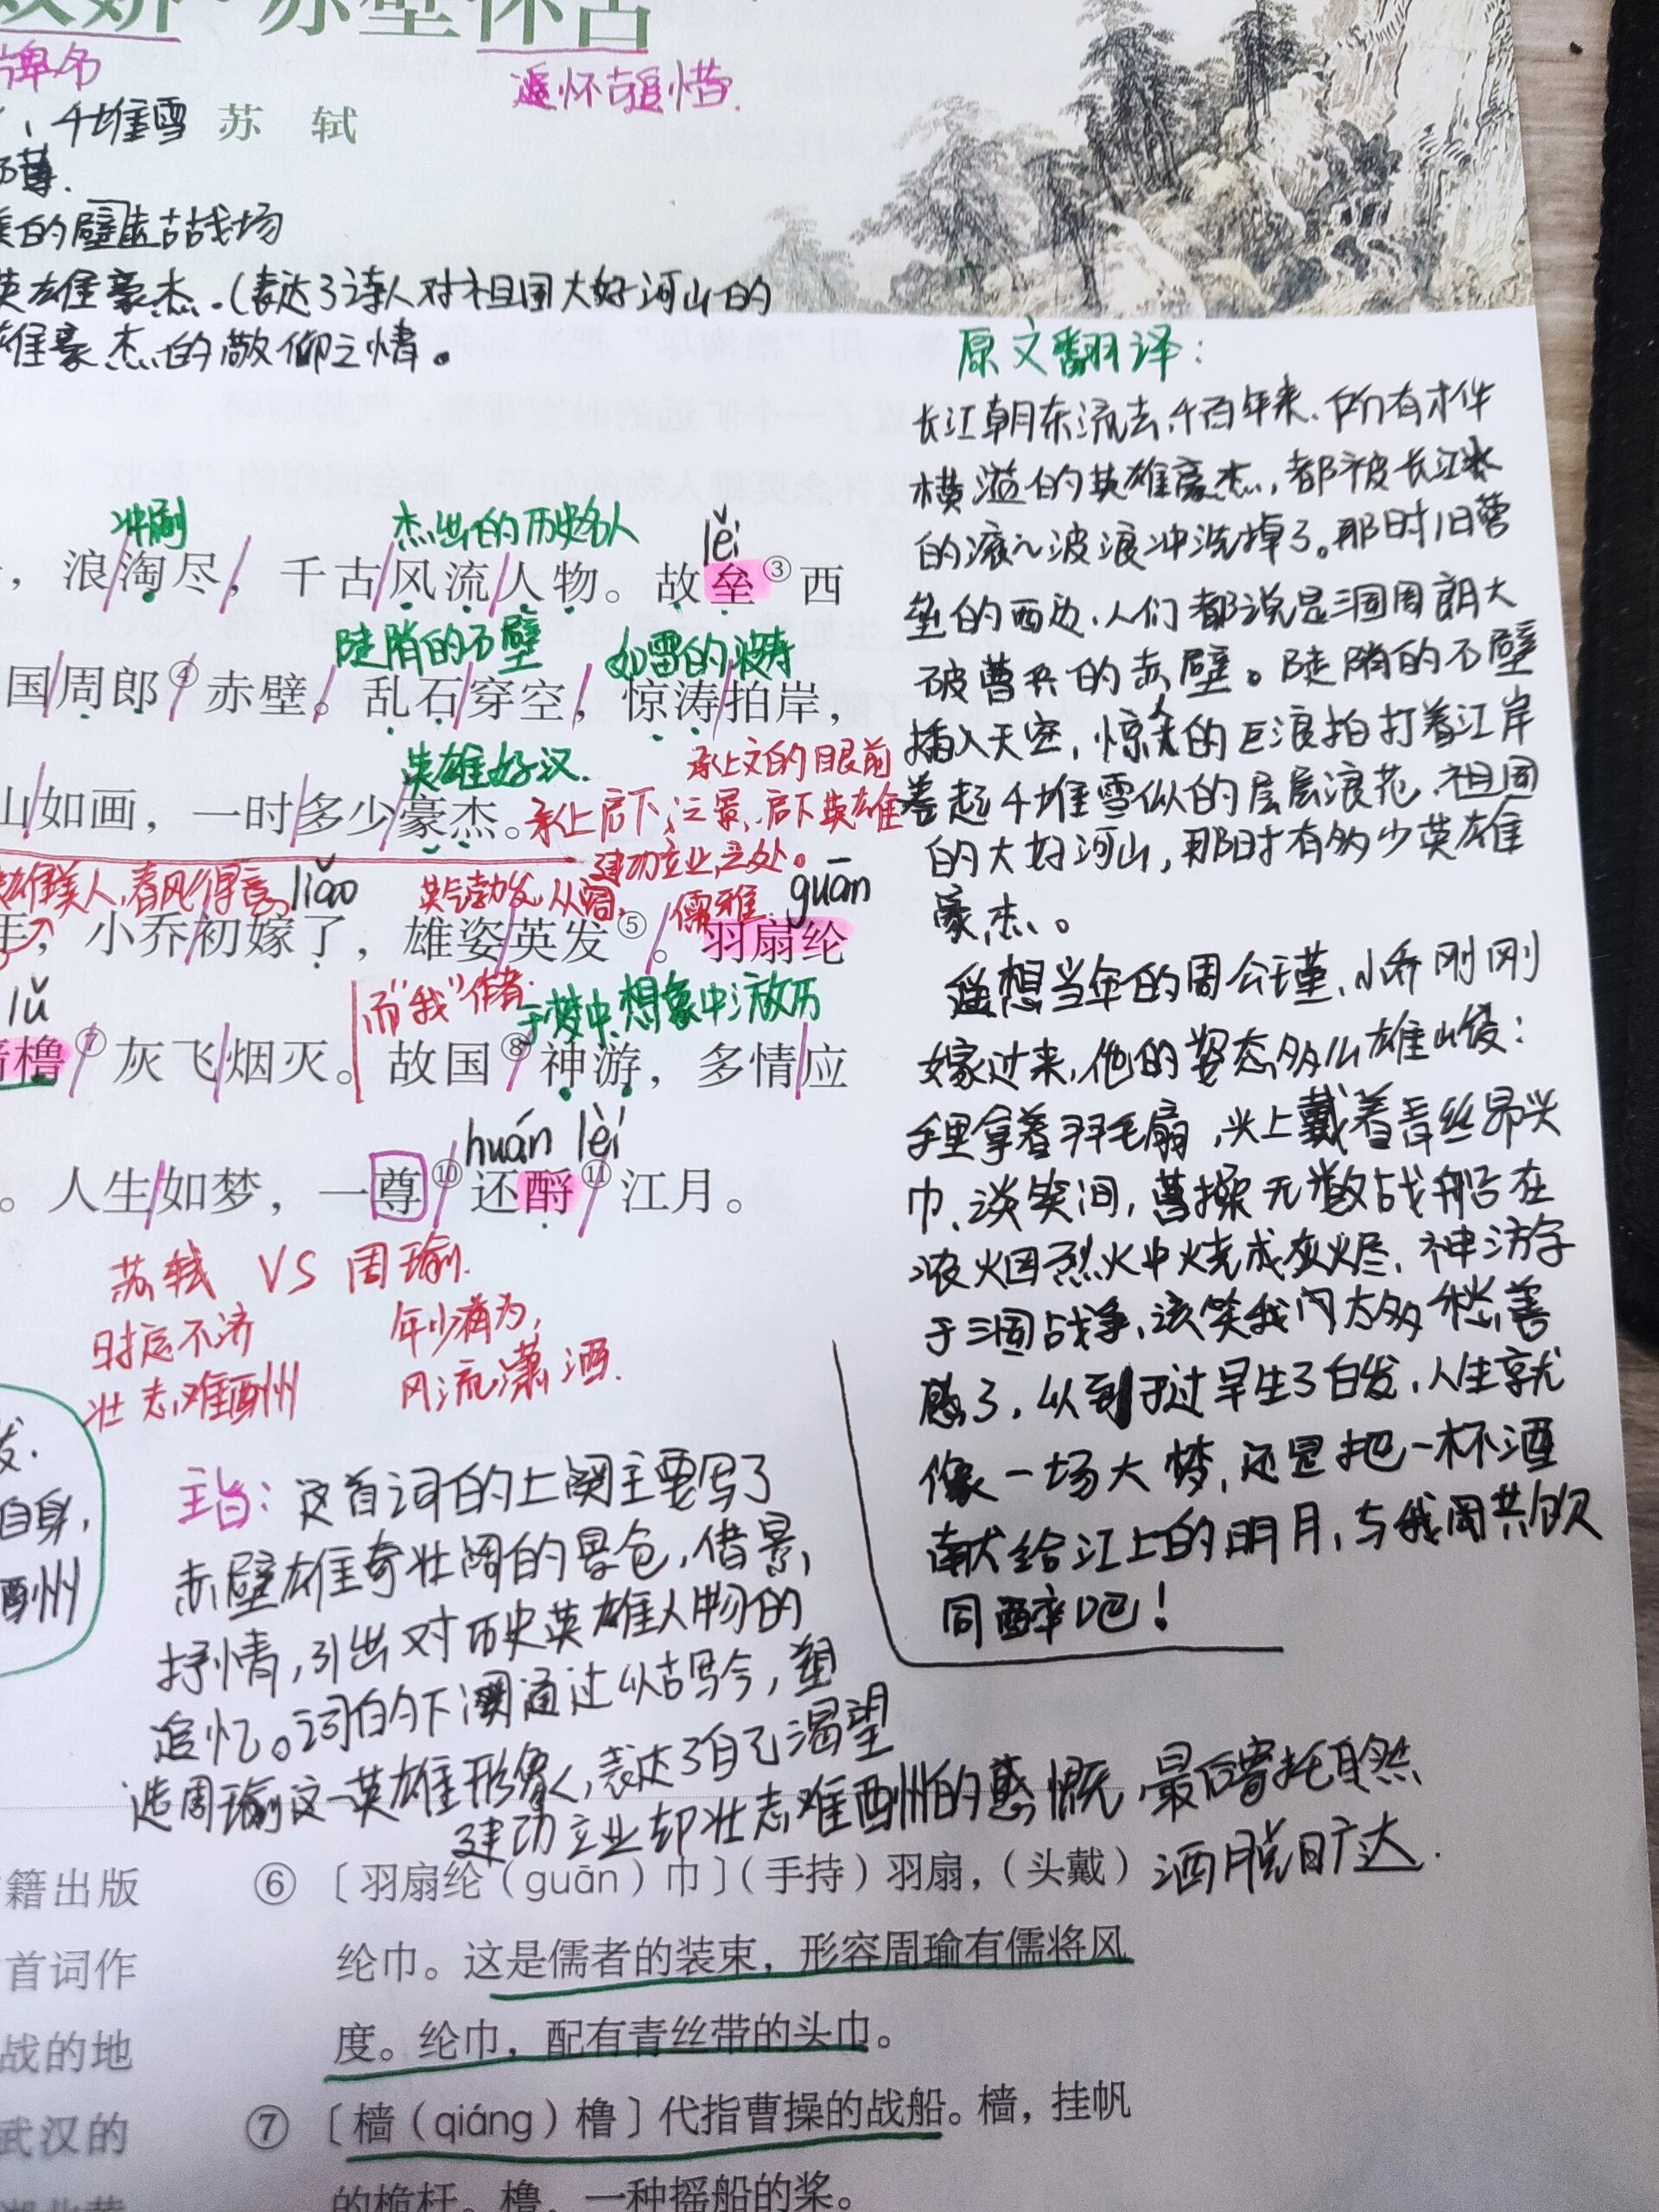 赤壁怀古
牌名
追怀古追惜.
千堆雪 苏 轼
的壁垒古战场
英雄豪杰。(表达了诗人对祖国大好河山的
雄豪杰的敬仰之情。
冲刷 杰出的历史名人 lěi
，浪淘尽，千古风流人物。故垒③西
陡陗的石壁 如雷的波涛
国周郎④赤壁。乱石穿空，惊涛拍岸，
英雄好汉. 承上文的眼前
山如画，一时多少豪杰。承上启下,之景,启下英雄
建功立业之处。
雄美人,春风得意 liǎo 英气勃发,从阔, 儒雅. guān
年，小乔初嫁了，雄姿英发⑤。羽扇纶
lǔ 而"我"作者: 于梦中.想象中游历
樯橹⑦灰飞烟灭。故国⑧神游，多情应
huán lèi
。人生如梦，一尊⑩还酹⑪江月。
苏轼 VS 周瑜.
时运不济 年少有为,
壮志难酬州 风流潇洒.
发.
自身,
酬
主旨: 这首词的上阕主要写了
赤壁雄奇壮阔的景色,借景,
抒情,引出对历史英雄人物的
追忆。词的下阕通过以古写今,塑
造周瑜这一英雄形象,表达了自己渴望
建功立业却壮志难酬的感慨,最后寄托自然
洒脱旷达.
原文翻译:
长江朝东流去,千百年来.所有才华
横溢的英雄豪杰,都被长江水
的滚滚波浪冲洗掉了。那时旧营
垒的西边.人们都说是三国周郎大
破曹兵的赤壁。陡陗的石壁
插入天空,惊人的巨浪拍打着江岸
卷起千堆雪似的层层浪花.祖国
的大好河山,那时有多少英雄
豪杰。
遥想当年的周公瑾.小乔刚刚
嫁过来,他的姿态多么雄峻:
手里拿着羽毛扇,头上戴着青丝帛头
巾.谈笑间,曹操无数战船在
浓烟烈火中烧成灰烬.神游字
于三国战争,该笑我门太多愁善
感了.以到于过早生了白发.人生就
像一场大梦,还是把一杯酒
献给江上的明月,与我同共饮
同醉吧!
籍出版
首词作
战的地
武汉的
⑥〔羽扇纶（guān）巾〕（手持）羽扇，（头戴）
纶巾。这是儒者的装束，形容周瑜有儒将风
度。纶巾，配有青丝带的头巾。
⑦〔樯（qiáng）橹〕代指曹操的战船。樯，挂帆
的桅杆。橹，一种摇船的桨。